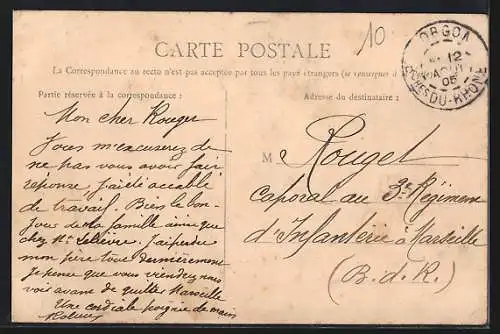 10
CARTE POSTALE
La Correspondance au recto n'est pas acceptée par tous les pays étrangers (se renseigner à
ORGON
12
AOUT
05
BCHES DU-RHÔNE
Partie réservée à la correspondance :
Mon cher Rouget
Vous m'excuserez de
ne pas vous avoir fait
réponse j'ai été accablé
de travail. Bien le bon-
jour de la famille ainsi que
chez Mr
mon père tout dernièrement
je pense que vous viendrez nous
voir avant de quitter Marseille
Une cordiale poignée de main
Adresse du destinataire :
M Rouget
caporal au 3e Régiment
d'Infanterie à Marseille
(B. d. R.)